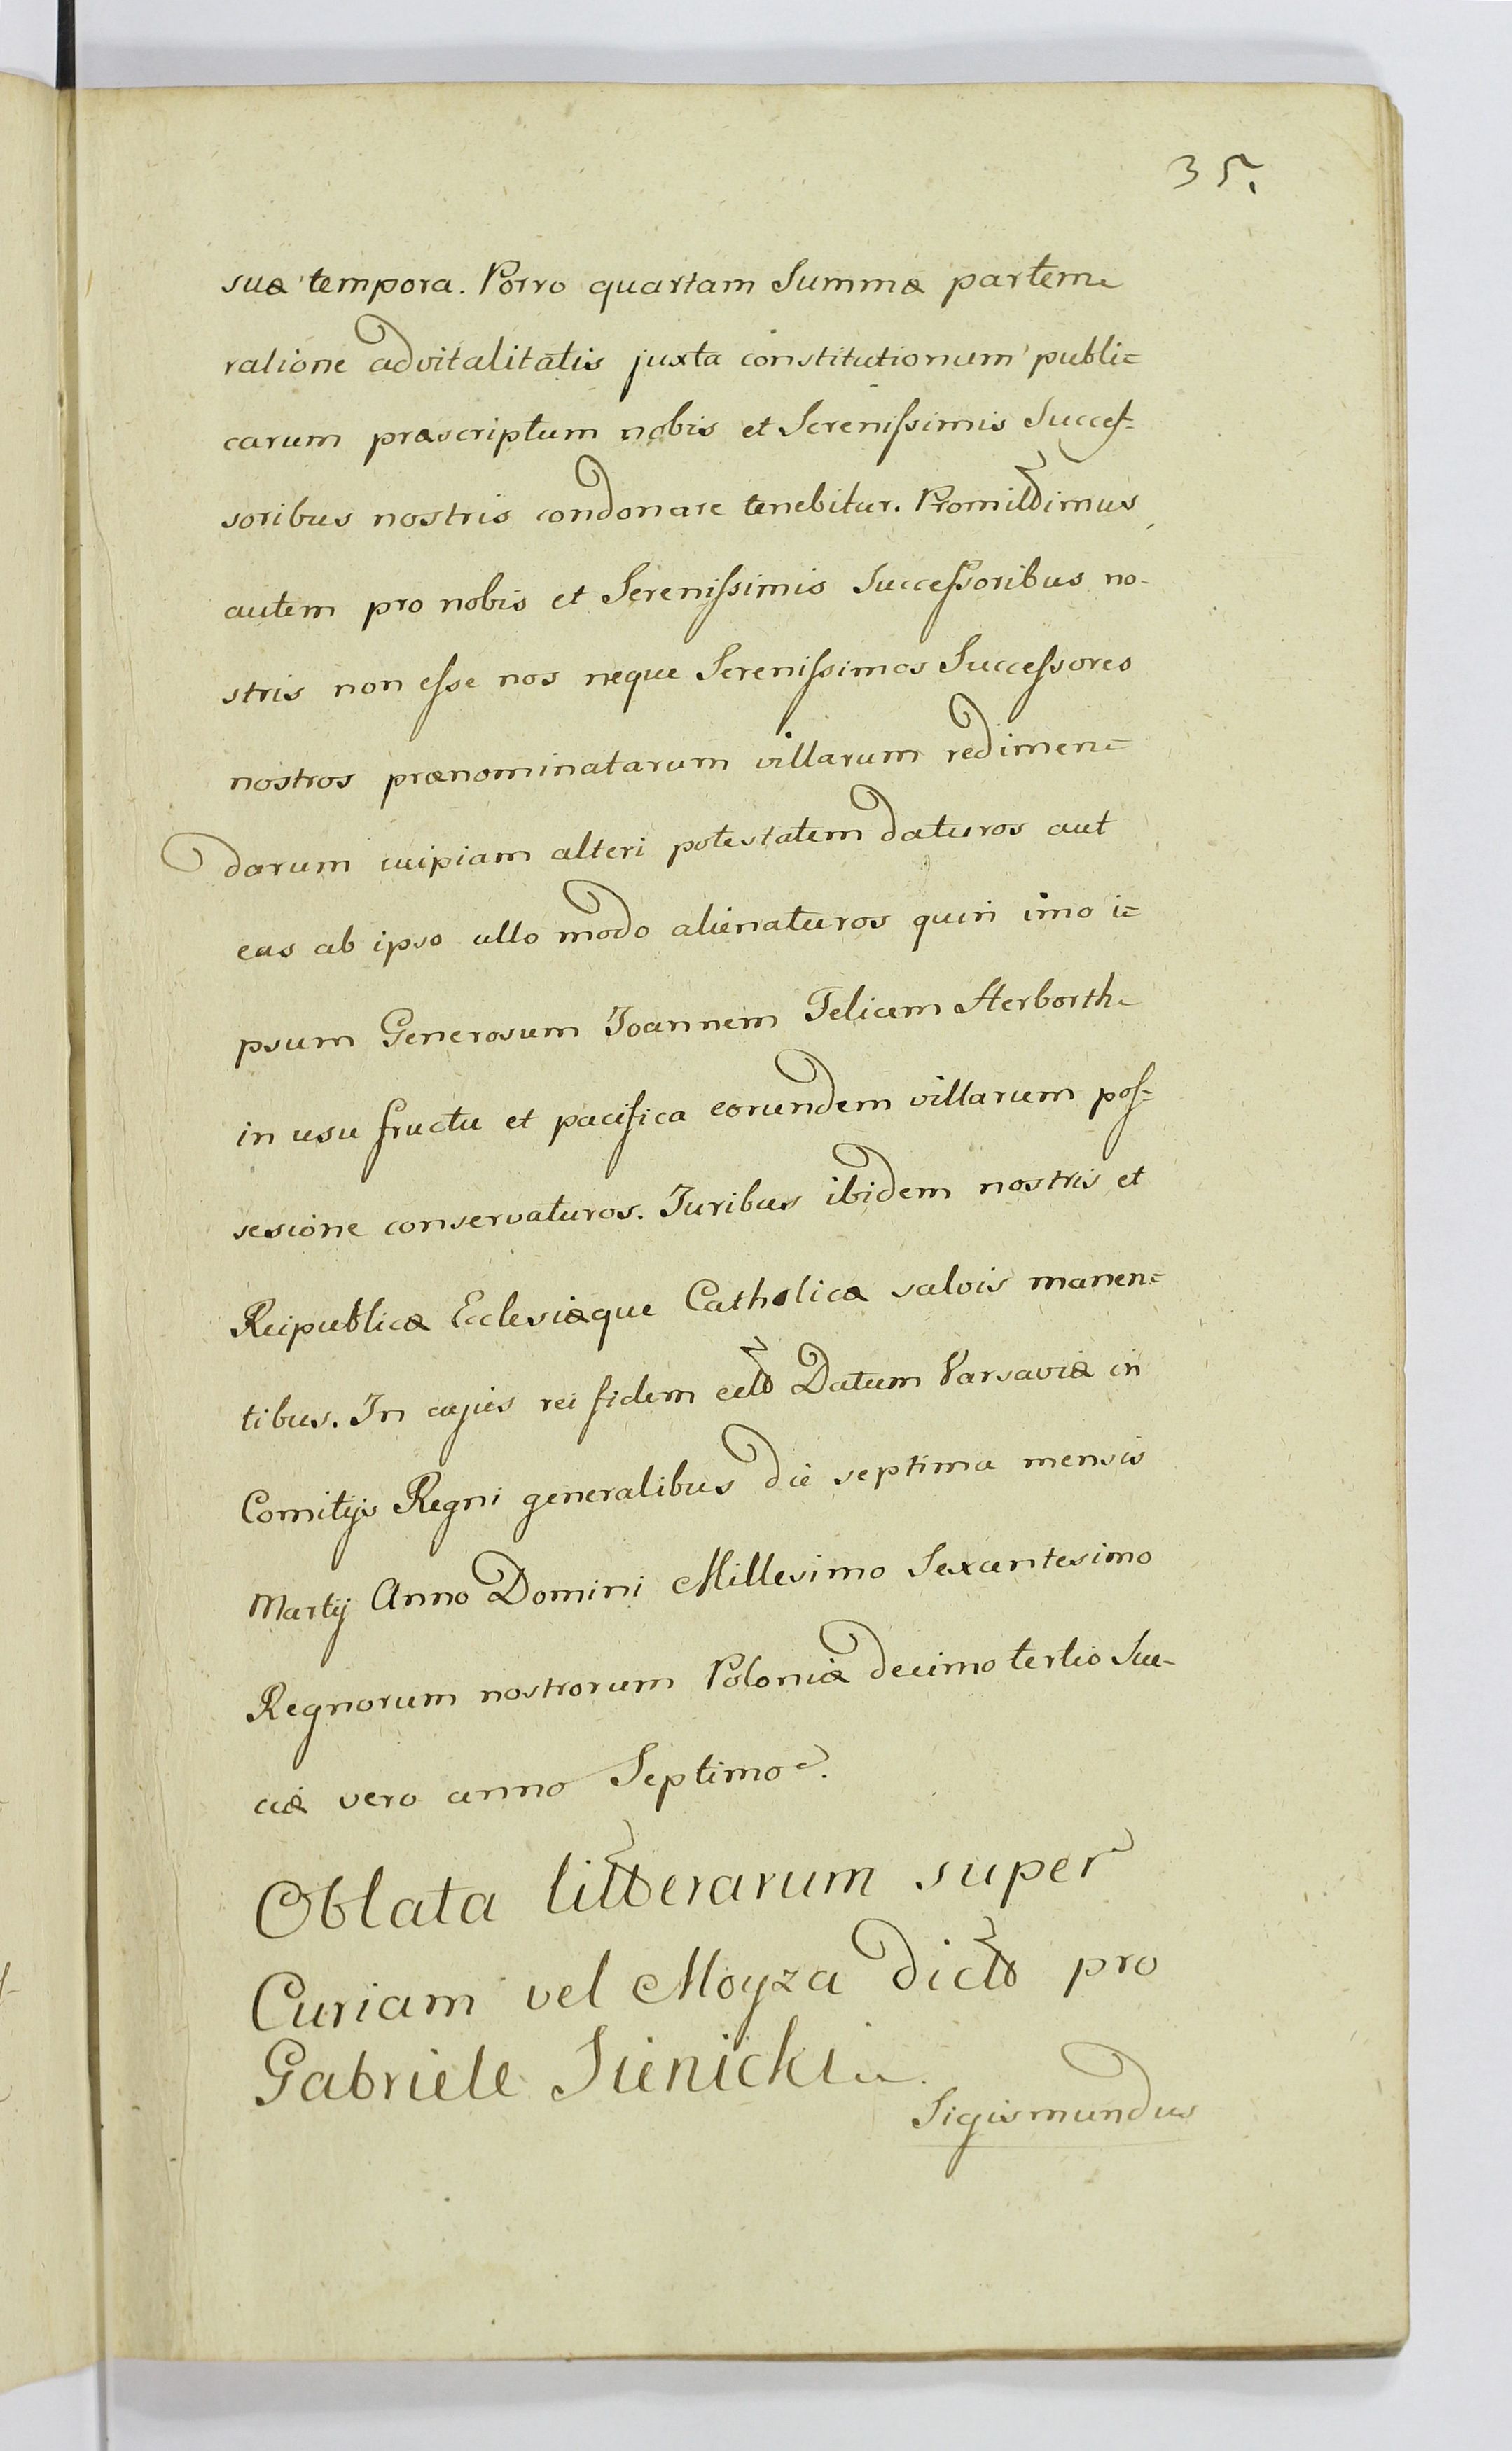 35.
suæ tempora. Porro quartam Summæ partem
ratione advitalitatis juxta constitutionum publi=
carum præscriptum nobis et Serenissimis Succes=
soribus nostris condonare tenebitur. Promittimus
autem pro nobis et Serenissimis Successoribus no-
stris non esse nos neque Serenissimos Successores
nostros prænominatarum villarum redimen=
darum cuipiam alteri potestatem daturos aut
eas ab ipso ullo modo alienaturos quin imo i=
psum Generosum Joannem Felicem Herborth
in usu fructu et pacifica eorundem villarum pos=
sesione conservaturos. Juribus ibidem nostris et
Reipublicæ Ecclesiæque Catholicæ salvis manen=
tibus. In cujus rei fidem ett Datum Varsaviæ in
Comitijs Regni generalibus die septima mensis
Martij Anno Domini Millesimo Sexcentesimo
Regnorum nostrorum Poloniæ decimo tertio Sue-
ciæ vero anno Septimo.
Oblata litterarum super
Curiam vel Moyza dict pro
Gabriele Sienicki
Sigismundus